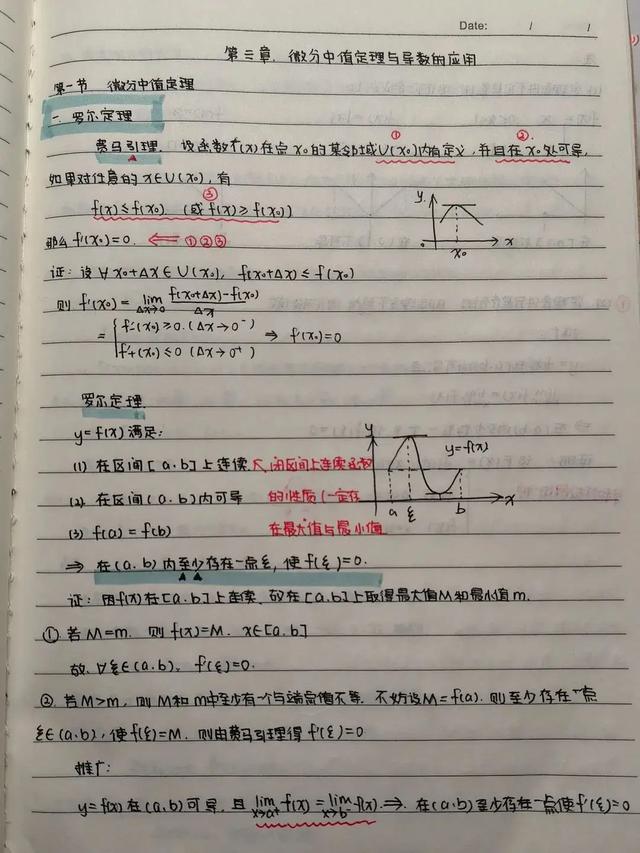 Date: / /
第三章. 微分中值定理与导数的应用
第一节 微分中值定理
一. 罗尔定理
① ②
费马引理. 设函数f(x)在点x₀的某邻域U(x₀)内有定义, 并且在x₀处可导,
如果对任意的x∈U(x₀), 有
③
f(x)≤f(x₀) (或f(x)≥f(x₀))
那么f'(x₀)=0. ⇐ ①②③
y
0 x₀ x
证: 设∀x₀+Δx∈U(x₀), f(x₀+Δx)≤f(x₀)
则 f'(x₀) = lim Δx→0 f(x₀+Δx)-f(x₀) / Δx
= { f'₋(x₀)≥0. (Δx→0⁻)
f'₊(x₀)≤0 (Δx→0⁺) ⇒ f'(x₀)=0
罗尔定理
y=f(x)满足:
(1) 在区间[a.b]上连续 闭区间上连续函数
(2) 在区间(a.b)内可导 的性质(一定存
(3) f(a)=f(b) 在最大值与最小值
y y=f(x)
a ξ b x
⇒ 在(a.b)内至少存在一点ξ, 使f(ξ)=0.
证: 因f(x)在[a.b]上连续. 故在[a.b]上取得最大值M和最小值m.
① 若M=m. 则f(x)=M. x∈[a.b]
故. ∀ξ∈(a.b), f'(ξ)=0.
② 若M>m, 则M和m中至少有一个与端点值不等. 不妨设M=f(a). 则至少存在一点
ξ∈(a.b), 使f(ξ)=M. 则由费马引理得f'(ξ)=0
推广:
y=f(x)在(a.b)可导. 且 lim x→a⁺ f(x)=lim x→b⁻ f(x). ⇒ 在(a.b)至少存在一点使f'(ξ)=0